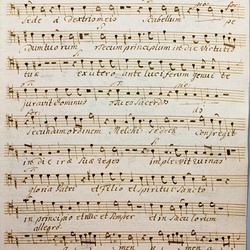 sede a dextris meis scabellum pe
dum tuorum tecum principium in die virtutis
tuæ ex utero ante luciferum genui te
juravit Dominus
secundum ordinem Melchisedech confregit
in die iræ suæ reges implevit ruinas
gloria Patri et Filio et Spiritui Sancto
in principio et nunc et semper et in sæculorum
allegro
men men